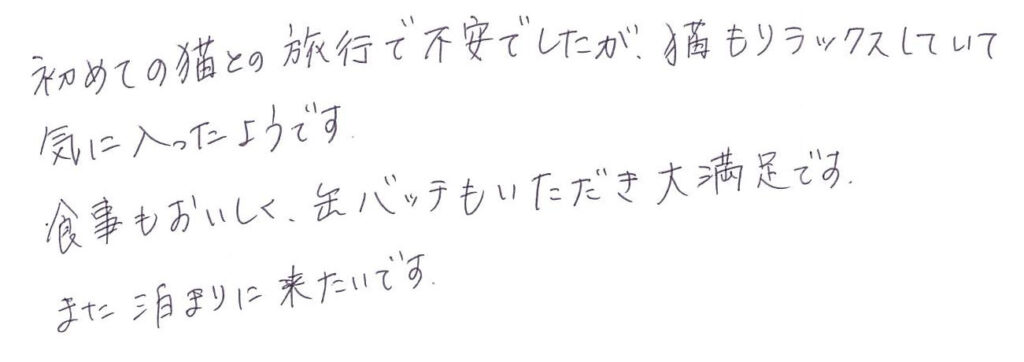 初めての猫との旅行で不安でしたが、猫もリラックスしていて
気に入ったようです.
食事もおいしく、缶バッチもいただき大満足です.
また泊まりに来たいです.